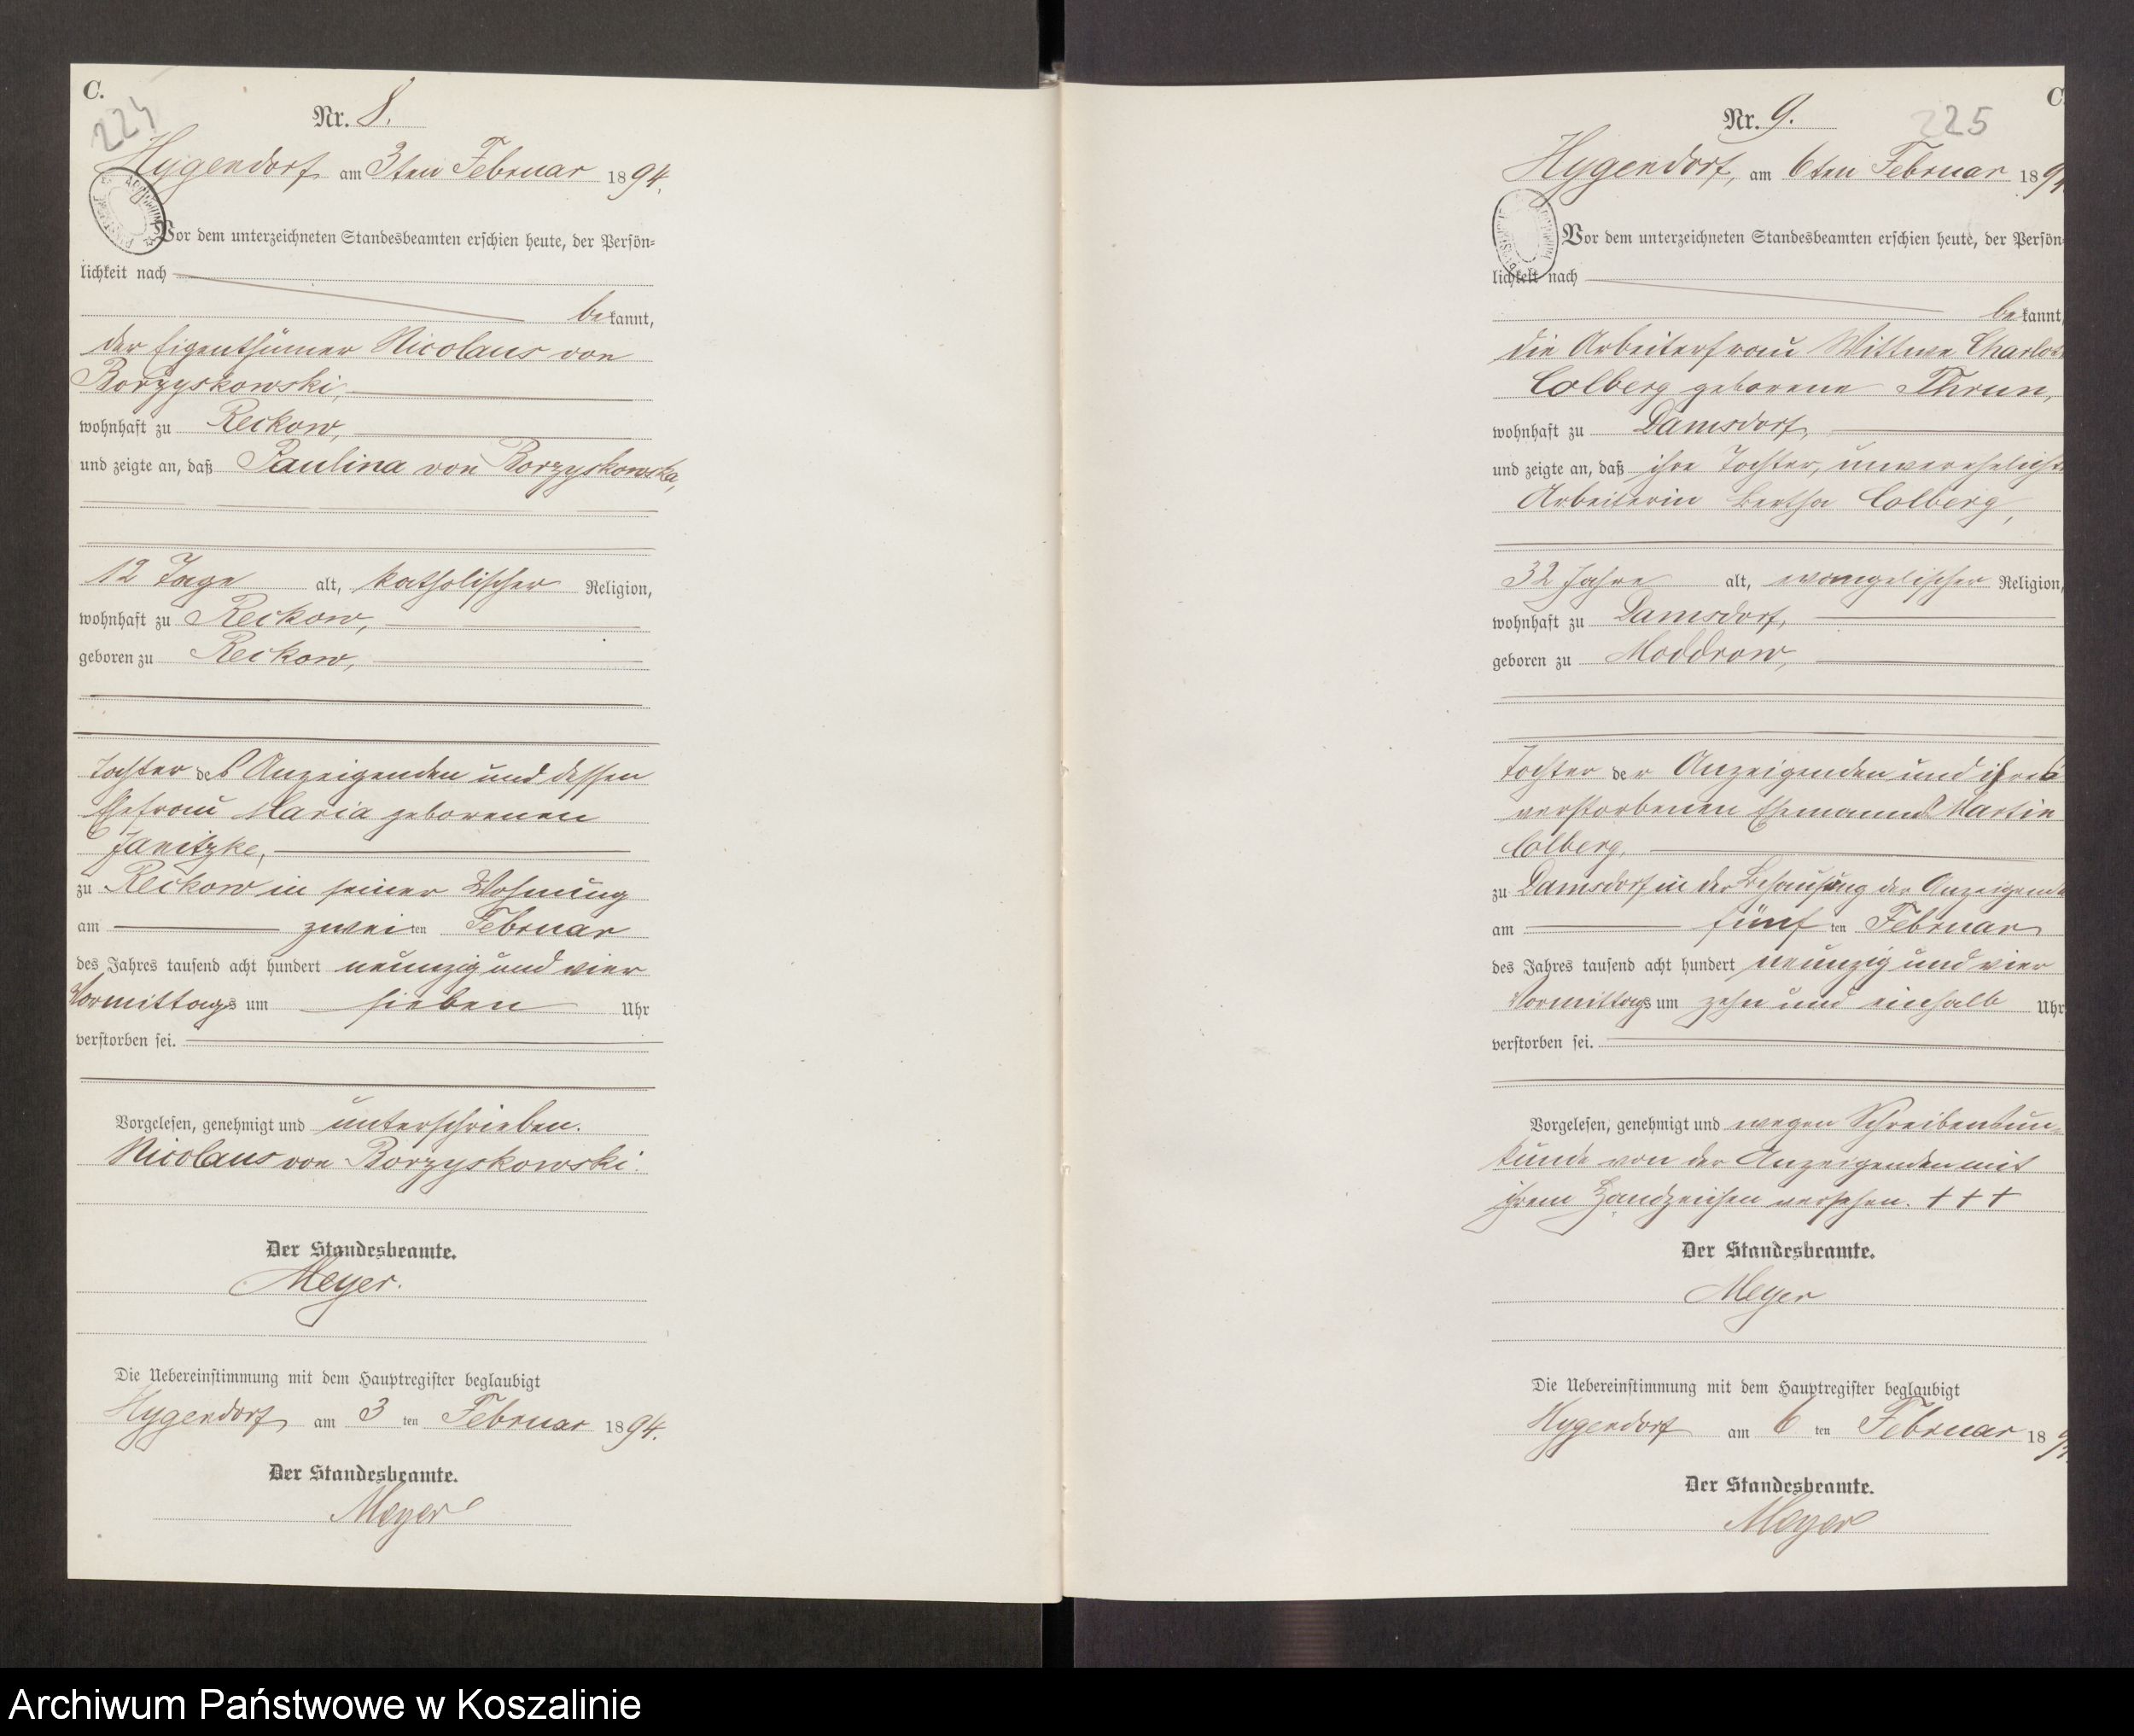 C.
224
Nr. 8.
Hygendorf am 3ten Februar 1894.
Vor dem unterzeichneten Standesbeamten erschien heute, der Persön-
lichkeit nach
bekannt,
der Eigenthümer Nicolaus von
Borzyskowski,
wohnhaft zu Reckow,
und zeigte an, daß Paulina von Borzyskowska,
12 Tage alt, katholischer Religion,
wohnhaft zu Reckow,
geboren zu Reckow,
Tochter des Anzeigenden und dessen
Ehefrau Maria geborenen
Janitzke,
zu Reckow in seiner Wohnung
am zweiten Februar
des Jahres tausend acht hundert neunzig und vier
Vormittags um sieben Uhr
verstorben sei.
Vorgelesen, genehmigt und unterschrieben.
Nicolaus von Borzyskowski.
Der Standesbeamte.
Meyer.
Die Uebereinstimmung mit dem Hauptregister beglaubigt
Hygendorf am 3 ten Februar 1894.
Der Standesbeamte.
Meyer
C.
225
Nr. 9.
Hygendorf, am 6ten Februar 189
Vor dem unterzeichneten Standesbeamten erschien heute, der Persön-
lichkeit nach
bekannt,
die Arbeiterfrau Wittwe Charlot
Colberg geborene Thrun,
wohnhaft zu Damsdorf,
und zeigte an, daß ihre Tochter, unverehelicht
Arbeiterin Bertha Colberg,
32 Jahre alt, evangelischer Religion,
wohnhaft zu Damsdorf,
geboren zu Moddrow,
Tochter der Anzeigenden und ihres
verstorbenen Ehemanns Martin
Colberg,
zu Damsdorf in der Behausung der Anzeigend
am fünften Februar
des Jahres tausend acht hundert neunzig und vier
Vormittags um zehn und einhalb Uhr
verstorben sei.
Vorgelesen, genehmigt und wegen Schreibensun-
kunde von der Anzeigenden mit
ihrem Handzeichen versehen. + + +
Der Standesbeamte.
Meyer
Die Uebereinstimmung mit dem Hauptregister beglaubigt
Hygendorf am 6 ten Februar 189
Der Standesbeamte.
Meyer
Archiwum Państwowe w Koszalinie